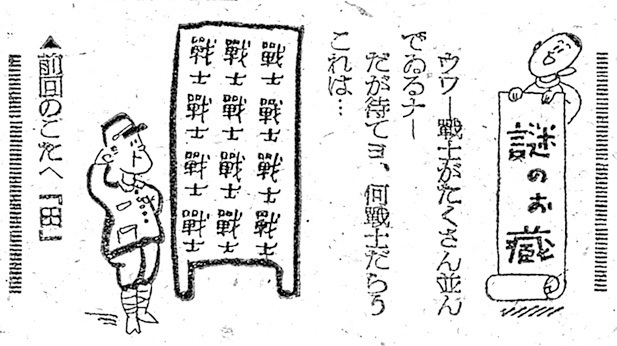 謎のお蔵
ウワー戰士がたくさん並ん
でゐるナー
だが待てヨ、何戰士だらう
これは…
戰士戰士戰士戰士
戰士戰士戰士戰士
戰士戰士戰士戰士
▲前回のこたへ『田』